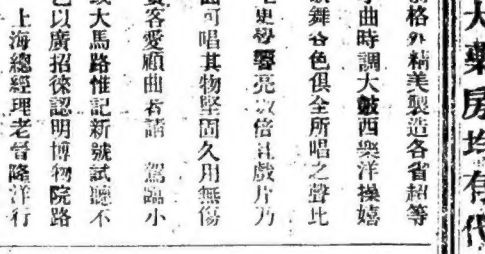 大藥房均有代
格外精美製造各省超等
曲時調大皷西樂洋操嬉
歌舞各色俱全所唱之聲比
更響亮數倍且戲片乃
面可唱其物堅固久用無傷
客愛顧曲者請 駕臨小
大馬路惟記新號試聽不
以廣招徠認明博物院路
上海總經理老晋隆洋行